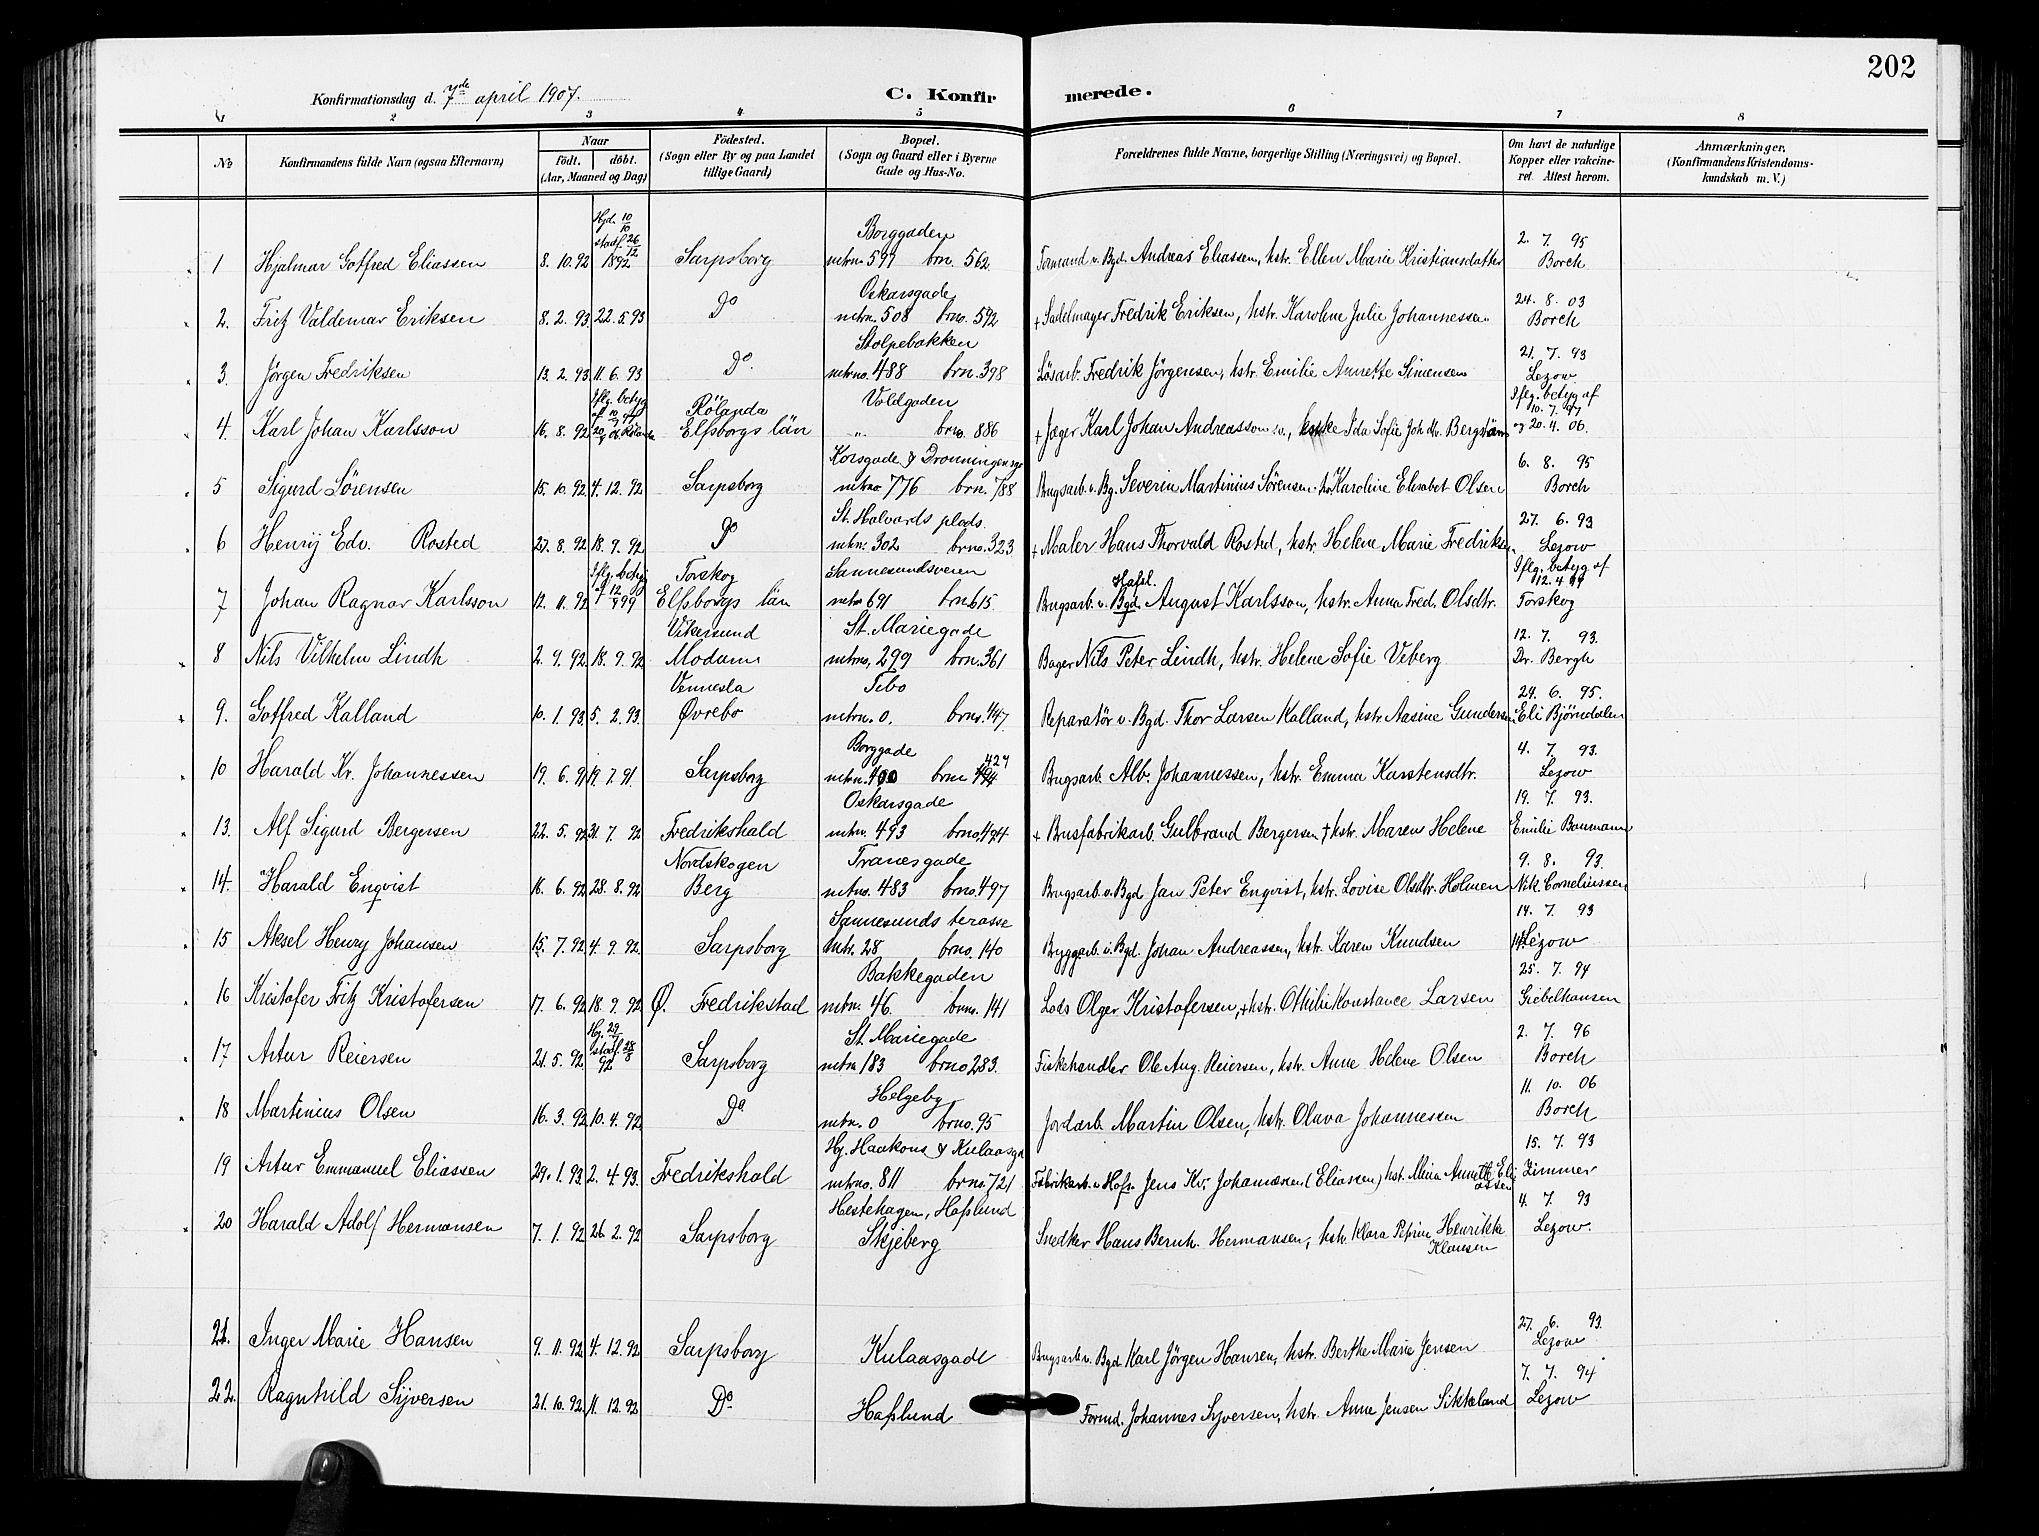 202
Konfirmationsdag d. 7de april 1907.
C. Konfirmerede.
1 2 3 4 5 6 7 8
No Konfirmandens fulde Navn (ogsaa Efternavn) Naar født. døbt. (Aar, Maaned og Dag) Födested. (Sogn eller By og paa Landet tillige Gaard) Bopæl. (Sogn og Gaard eller i Byerne Gade og Hus-No. Forældrenes fulde Navne, borgerlige Stilling (Næringsvei) og Bopæl. Om havt de naturlige Kopper eller vaccineret. Attest herom. Anmærkninger. (Konfirmandens Kristendomskundskab m. V.)
Hjd. 10/10 stadf. 26/12 Borggaden 2. 7. 95
1 Hjalmar Gotfred Eliassen 8. 10. 92 1892 Sarpsborg mtrn. 591 brn. 562. Formand v. Bgd. Andreas Eliassen, hstr. Ellen Marie Kristiansdatter Borch
Oskarsgade 24. 8. 03
2. Fritz Valdemar Eriksen 8. 2. 93 22. 5. 93 Do mtrn. 508 brno. 592 + Sadelmager Fredrik Eriksen, hstr. Karoline Julie Johannessen Borch
Stolpebakken 21. 7. 93
3. Jörgen Fredriksen 13. 2. 93 11. 6. 93 Do. mtrno. 488 brn. 398 Løsarb. Fredrik Jörgensen, hstr. Emilie Annette Simensen Lezow
Iflg. betyg af Rölanda Voldgaden Iflg. betyg af 10. 7. 97
4. Karl Johan Karlsson 16. 8. 92 Elfsborgs län „ brno. 886 + Jæger Karl Johan Andreasson Ida Sofie Joh. dtr. Bergström og 20. 4. 06.
Korsgade & Dronningensg. 6. 8. 95
5 Sigurd Sörensen 15. 10. 92 4. 12. 92 Sarpsborg mtrno 776 brn. 788 Brugsarb. v. Bg. Severin Martinius Sörensen Karoline Elisabet Olsen Borch
St. Halvards plads. 27. 6. 93
6 Henrij Edv. Rosted 27. 8. 92 18. 9. 92 Do mtrn. 302 brno. 323 + Maler Hans Thorvald Rosted, hstr. Helene Marie Fredriksen Lezow
Iflg. betyg af 12/4 99 Torskog Sannesundsveien Iflg. betyg af 12. 4 99
7 Johan Ragnar Karlsson 12. 11. 92 Elfsborgs län mtrn 691 brn 615. Brugsarb. v. Hafsl. Bgd. August Karlsson, hstr. Anna Fred. Olsdtr. Torskog
Vikersund St. Mariegade 12. 7. 93.
8 Nils Vilhelm Lindh 2. 9. 92 18. 9. 92 Modum mtrno, 299 brn. 361 Bager Nils Peter Lindh, hstr. Helene Sofie Viberg Dr. Bergh
Vennesla Tebo 24. 6. 95.
9. Gotfred Kalland 10. 1. 93 5. 2. 93. Øvrebo mtrn. 0. brno. 447. Reparatör v. Bgd. Thor Larsen Kalland, hstr. Aasine Gundersen Eli Bjørndalen
Borggade 427 4. 7. 93.
10 Harald Kr. Johannessen 19. 6. 91 19. 7. 91. Sarpsborg mtrn. 400 brn 494 Brugsarb. Alb. Johannessen, hstr. Emma Karstensdtr. Lezow
Oskarsgade 19. 7. 93.
13. Alf Sigurd Bergersen 22. 5. 92 31. 7. 92 Fredrikshald mtrn. 493 brno. 494 + Brusfabrikarb. Gulbrand Bergersen + hstr. Maren Helene Emilie Baumann
Nordskogen Tranesgade 9. 8. 93.
14. Harald Enqvist 18. 6. 92 28. 8. 92 Berg mtno. 483 brno. 497 Brugsarb. v. Bgd Jan Peter Enqvist, hstr. Lovise Olsdtr. Holmen Nik. Corneliussen
Sannesunds terasse 14. 7. 93
15 Aksel Henry Johansen 15. 7. 92 4. 9. 92 Sarpsborg mtr. 28 brno. 140 Byggarb. v. Bgd. Johan Andreassen, hstr. Karen Knudsen Lezow
Bakkegaden 25. 7. 94
16 Kristofer Fritz Kristofersen 17. 6. 92 18. 9. 92 Ø. Fredrikstad mtrn. 46. brno. 141 Lods Olger Kristofersen, + hstr. Othilie Konstance Larsen Giebelhausen
Hj. 29/5 stadf. 28/8 92 St. Mariegade 2. 7. 96
17 Artur Reiersen 21. 5. 92 Sarpsborg mtrn 183 brno 283. Fiskehandler Ole Aug. Reiersen, hstr. Anne Helene Olsen Borch
Helgeby 11. 10. 06
18 Martinius Olsen 16. 3. 92 10. 4. 92 Do mtrn. 0 brno. 95 Jordarb. Martin Olsen, hstr. Olava Johannessen Borch
Hj. Haakons & Kulaasgd. 15. 7. 93
19 Artur Emmanuel Eliassen 29. 1. 93 2. 4. 93. Fredrikshald mtrno. 811 brno. 721 Fabrikarb. v. Hafs. Jens Kr. Johannessen (Eliassen) hst. Mina Annette Eliassen Zimmer
Hestehagen, Hafslund 4. 7. 93
20 Harald Adolf Hermansen 7. 1. 92 26. 2. 92 Sarpsborg Skjeberg Snedker Hans Bernh. Hermansen, hstr. Klara Petrine Henrikke Klausen Lezow.
27. 6. 93.
21. Inger Marie Hansen 9. 11. 92 4. 12. 92 Sarpsborg Kulaasgade Brugsarb. v. Bgd Karl Jörgen Hansen, hstr. Berthe Marie Jensen Lezow
7. 7. 94
22. Ragnhild Sijversen 21. 10. 92 11. 12. 92 Do Hafslund Formd. Johannes Syversen, hstr. Anne Jensen Sikkeland Lezow